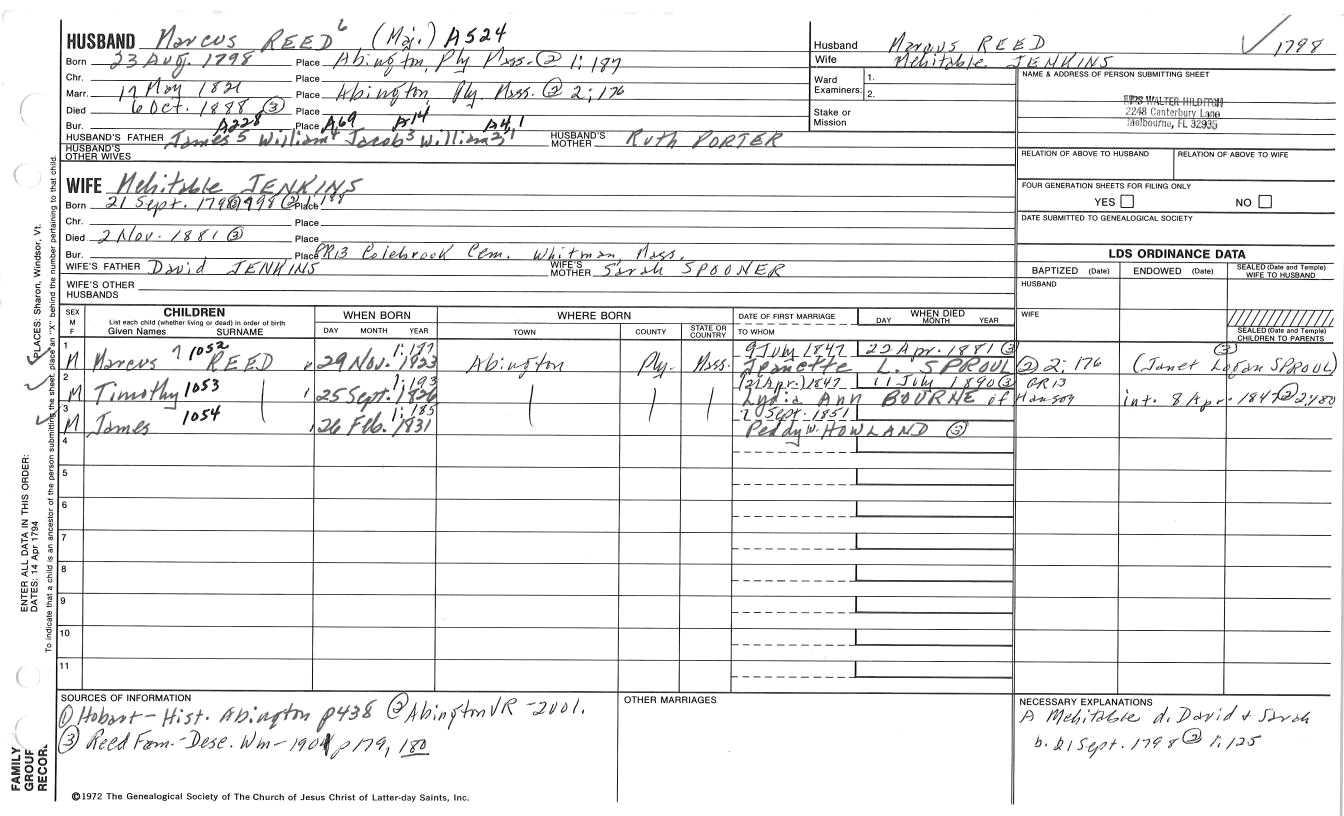 HUSBAND Marcus REED 6 (Maj.) A524
Born 23 Aug. 1798 Place Abington, Ply Mass. ② 1:187
Chr. Place
Marr. 17 May 1821 Place Abington Ply. Mass. ② 2:176
Died 6 Oct. 1888 ③ Place
Bur. A228 Place A69 A14 A4,1
HUSBAND'S FATHER James 5 William 4 Jacob 3 William 2,1 HUSBAND'S MOTHER Ruth PORTER
HUSBAND'S OTHER WIVES
Husband Marcus REED
Wife Mehitable JENKINS
Ward Examiners: 1.
2.
Stake or Mission
✓ 1798
NAME & ADDRESS OF PERSON SUBMITTING SHEET
MRS WALTER HILDITCH
2248 Canterbury Lane
Melbourne, FL 32935
RELATION OF ABOVE TO HUSBAND RELATION OF ABOVE TO WIFE
FOUR GENERATION SHEETS FOR FILING ONLY
YES NO
DATE SUBMITTED TO GENEALOGICAL SOCIETY
WIFE Mehitable JENKINS
Born 21 Sept. 1798 Place
Chr. Place
Died 2 Nov. 1881 ③ Place
Bur. Place PR13 Colebrook Cem. Whitman, Mass.
WIFE'S FATHER David JENKINS WIFE'S MOTHER Sarah SPOONER
WIFE'S OTHER HUSBANDS
LDS ORDINANCE DATA
BAPTIZED (Date) ENDOWED (Date) SEALED (Date and Temple) WIFE TO HUSBAND
HUSBAND
WIFE
SEALED (Date and Temple) CHILDREN TO PARENTS
SEX M F
CHILDREN
List each child (whether living or dead) in order of birth
Given Names SURNAME
WHEN BORN
DAY MONTH YEAR
WHERE BORN
TOWN COUNTY STATE OR COUNTRY
DATE OF FIRST MARRIAGE
TO WHOM
WHEN DIED
DAY MONTH YEAR
1 M Marcus 7 1052 REED 29 Nov. 1823 1:197 Abington Ply. Mass. 9 July 1847 22 Apr. 1881 ③
Jeanette L. SPROUL ② 2:176 (Janet Logan SPROUL) ③
2 M Timothy 1053 25 Sept. 1826 1:193 12 Apr. 1847 11 July 1890 ③ PR13
Lydia Ann BOURNE of Hanson int. 8 Apr. 1847 ② 2:180
3 M James 1054 26 Feb. 1831 1:185 20 Sept. 1851
Peddy W. HOWLAND ③
4
5
6
7
8
9
10
11
SOURCES OF INFORMATION
① Hobart - Hist. Abington p438 ② Abington VR - 2001.
③ Reed Fam. - Desc. Wm - 1901 p179, 180
OTHER MARRIAGES
NECESSARY EXPLANATIONS
A Mehitable d. David + Sarah
b. 21 Sept. 1798 ② 1:125
©1972 The Genealogical Society of The Church of Jesus Christ of Latter-day Saints, Inc.
FAMILY GROUP RECOR.
ENTER ALL DATA IN THIS ORDER:
DATES: 14 Apr 1794
PLACES: Sharon, Windsor, Vt.
To indicate that a child is an ancestor of the person submitting the sheet, place an "X" behind the number pertaining to that child.